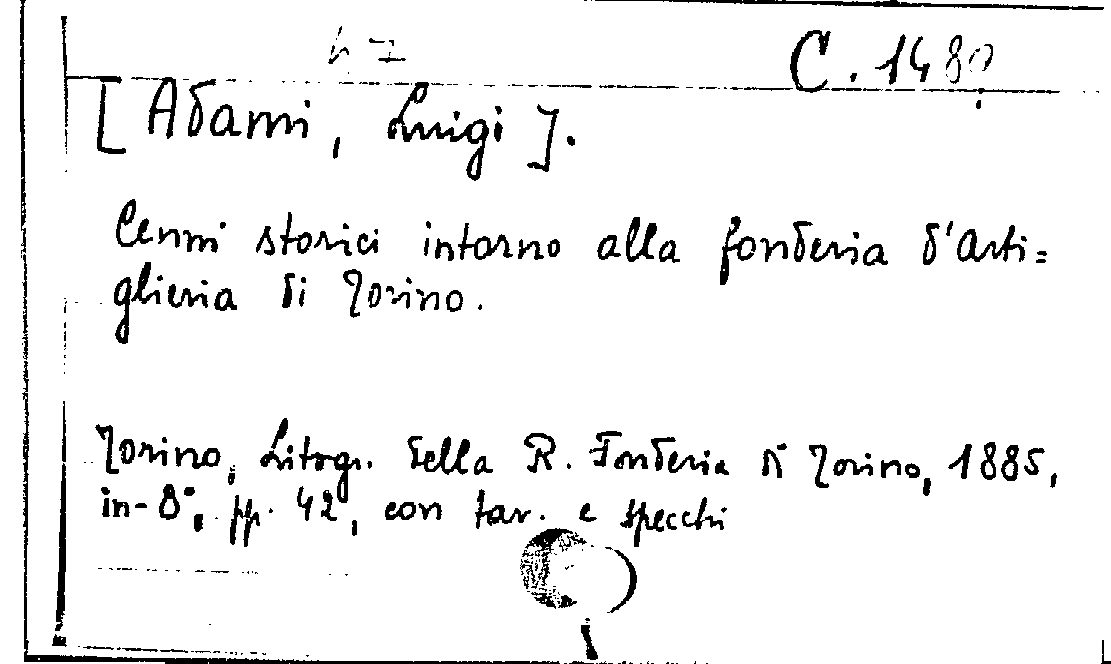 C. 1480
[ Adami, Luigi ].
Cenni storici intorno alla fonderia d'arti=
glieria di Torino.
Torino, Litogr. della R. Fonderia di Torino, 1885,
in-8°, pp. 42, con tav. e specchi